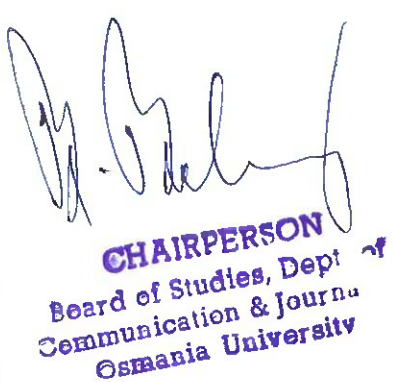 CHAIRPERSON
Board of Studies, Dept of
Communication & Journa
Osmania University